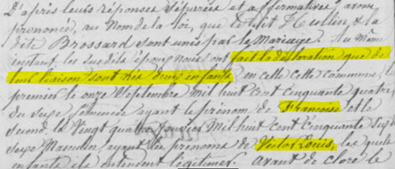 D'après leurs réponses séparées et affirmatives, avons
prononcé, au Nom de la loi, que le dit Hullin, & la
dite Brossard sont unis par le Mariage. Au même
instant, les susdits époux nous ont fait la déclaration que de
leur liaison sont nés deux enfants, en cette commune, le
premier le onze Septembre mil huit cent cinquante quatre
du Sexe féminin ayant le prénom de Françoise et le
Second, le Vingt quatre Janvier Mil huit cent Cinquante Sept
Sexe Masculin, ayant les prénoms de Victor Louis, les quels
enfants ils entendent légitimer. Avant de clore le